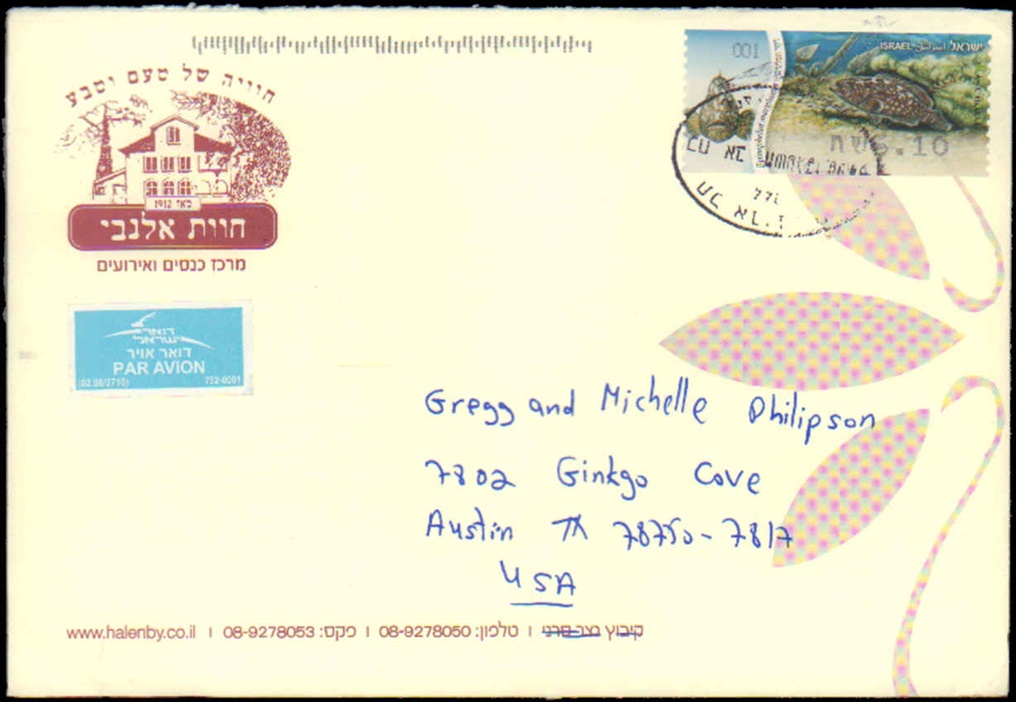 חווייה של טעם וטבע
מאז 1912
חוות אלנבי
מרכז כנסים ואירועים
001
ISRAEL اسرائيل ישראל
דואר
ישראל
דואר אויר
PAR AVION
(02.06/2710) 752-0001
Gregg and Michelle Philipson
7802 Ginkgo Cove
Austin TX 78750-7817
USA
www.halenby.co.il | 08-9278053 :פקס | 08-9278050 :טלפון | קיבוץ נצר סרני